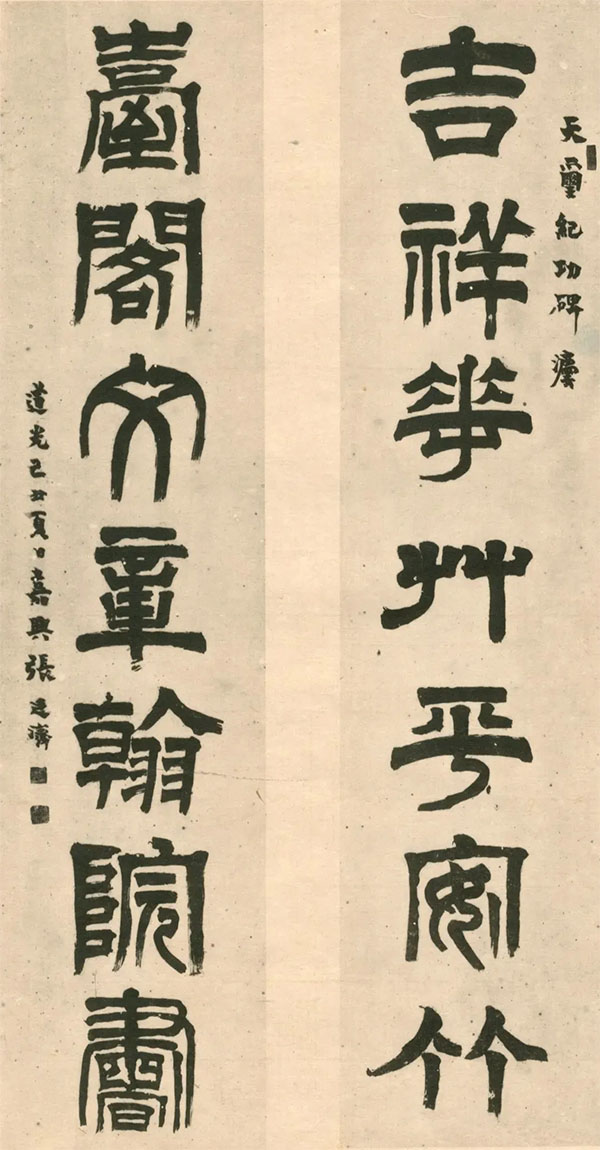 天璽紀功碑灋
吉祥華艸平安竹
臺閣文章翰院書
道光己丑夏日嘉興張廷濟